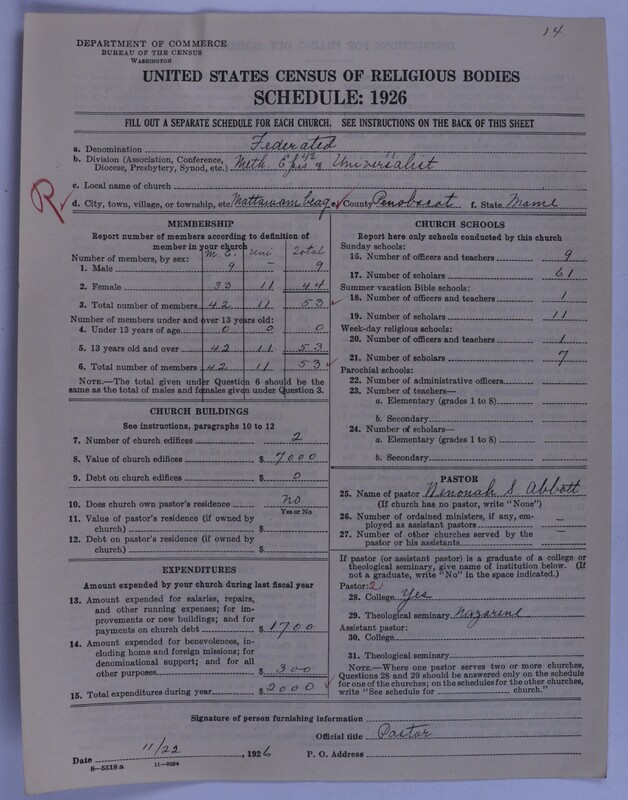 14
DEPARTMENT OF COMMERCE
BUREAU OF THE CENSUS
WASHINGTON
UNITED STATES CENSUS OF RELIGIOUS BODIES
SCHEDULE: 1926
FILL OUT A SEPARATE SCHEDULE FOR EACH CHURCH. SEE INSTRUCTIONS ON THE BACK OF THIS SHEET
a. Denomination Federated
b. Division (Association, Conference, Diocese, Presbytery, Synod, etc.) Meth Epis 42 & Universalist 11
c. Local name of church
d. City, town, village, or township, etc. Mattawamkeag e. County Penobscot f. State Maine
R
MEMBERSHIP
Report number of members according to definition of
member in your church
M.E. Uni Total
Number of members, by sex:
1. Male 9 - 9
2. Female 33 11 44
3. Total number of members 42 11 53
Number of members under and over 13 years old:
4. Under 13 years of age 0 0 0
5. 13 years old and over 42 11 53
6. Total number of members 42 11 53
NOTE.—The total given under Question 6 should be the
same as the total of males and females given under Question 3.
CHURCH BUILDINGS
See instructions, paragraphs 10 to 12
7. Number of church edifices 2
8. Value of church edifices $ 7000
9. Debt on church edifices $ 0
10. Does church own pastor's residence No
Yes or No
11. Value of pastor's residence (if owned by
church) $
12. Debt on pastor's residence (if owned by
church) $
EXPENDITURES
Amount expended by your church during last fiscal year
13. Amount expended for salaries, repairs,
and other running expenses; for im-
provements or new buildings; and for
payments on church debt $ 1700
14. Amount expended for benevolences, in-
cluding home and foreign missions; for
denominational support; and for all
other purposes $ 300
15. Total expenditures during year $ 2000
CHURCH SCHOOLS
Report here only schools conducted by this church
Sunday schools:
16. Number of officers and teachers 9
17. Number of scholars 61
Summer vacation Bible schools:
18. Number of officers and teachers 1
19. Number of scholars 11
Week-day religious schools:
20. Number of officers and teachers 1
21. Number of scholars 7
Parochial schools:
22. Number of administrative officers
23. Number of teachers—
a. Elementary (grades 1 to 8)
b. Secondary
24. Number of scholars—
a. Elementary (grades 1 to 8)
b. Secondary
PASTOR
25. Name of pastor Nenonah S Abbott
(If church has no pastor, write "None")
26. Number of ordained ministers, if any, em-
ployed as assistant pastors —
27. Number of other churches served by the
pastor or his assistants —
If pastor (or assistant pastor) is a graduate of a college or
theological seminary, give name of institution below. (If
not a graduate, write "No" in the space indicated.)
Pastor: 2
28. College Yes
29. Theological seminary Nazarine
Assistant pastor:
30. College
31. Theological seminary
NOTE.—Where one pastor serves two or more churches,
Questions 28 and 29 should be answered only on the schedule
for one of the churches; on the schedules for the other churches,
write "See schedule for church."
Signature of person furnishing information
Official title Pastor
Date 11/22, 1926 P. O. Address
8—5518a 11—9064